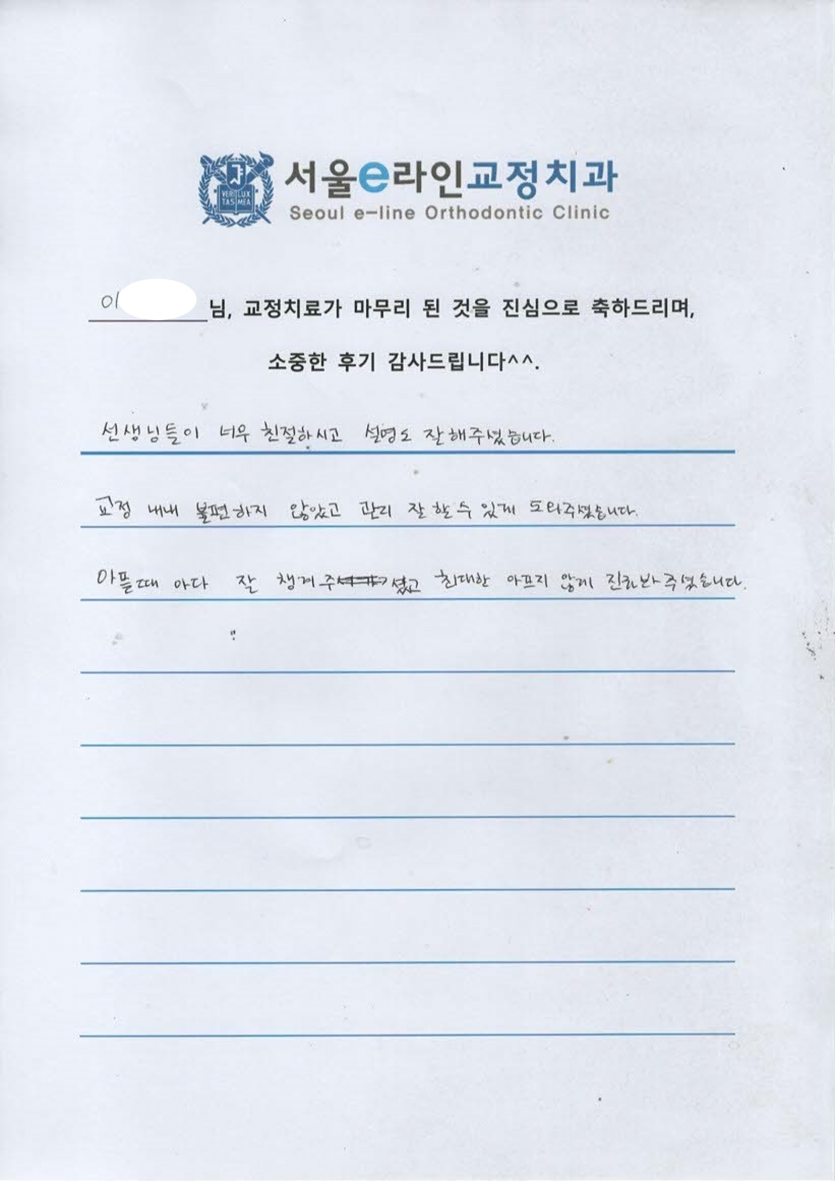 VERI LUX
TAS MEA
서울e라인교정치과
Seoul e-line Orthodontic Clinic
이 님, 교정치료가 마무리 된 것을 진심으로 축하드리며,
소중한 후기 감사드립니다^^.
선생님들이 너무 친절하시고 설명도 잘해주셨습니다.
교정 내내 불편하지 않았고 관리 잘 할 수 있게 도와주셨습니다.
아플때 마다 잘 챙겨주셨고 최대한 아프지 않게 진료봐주셨습니다.